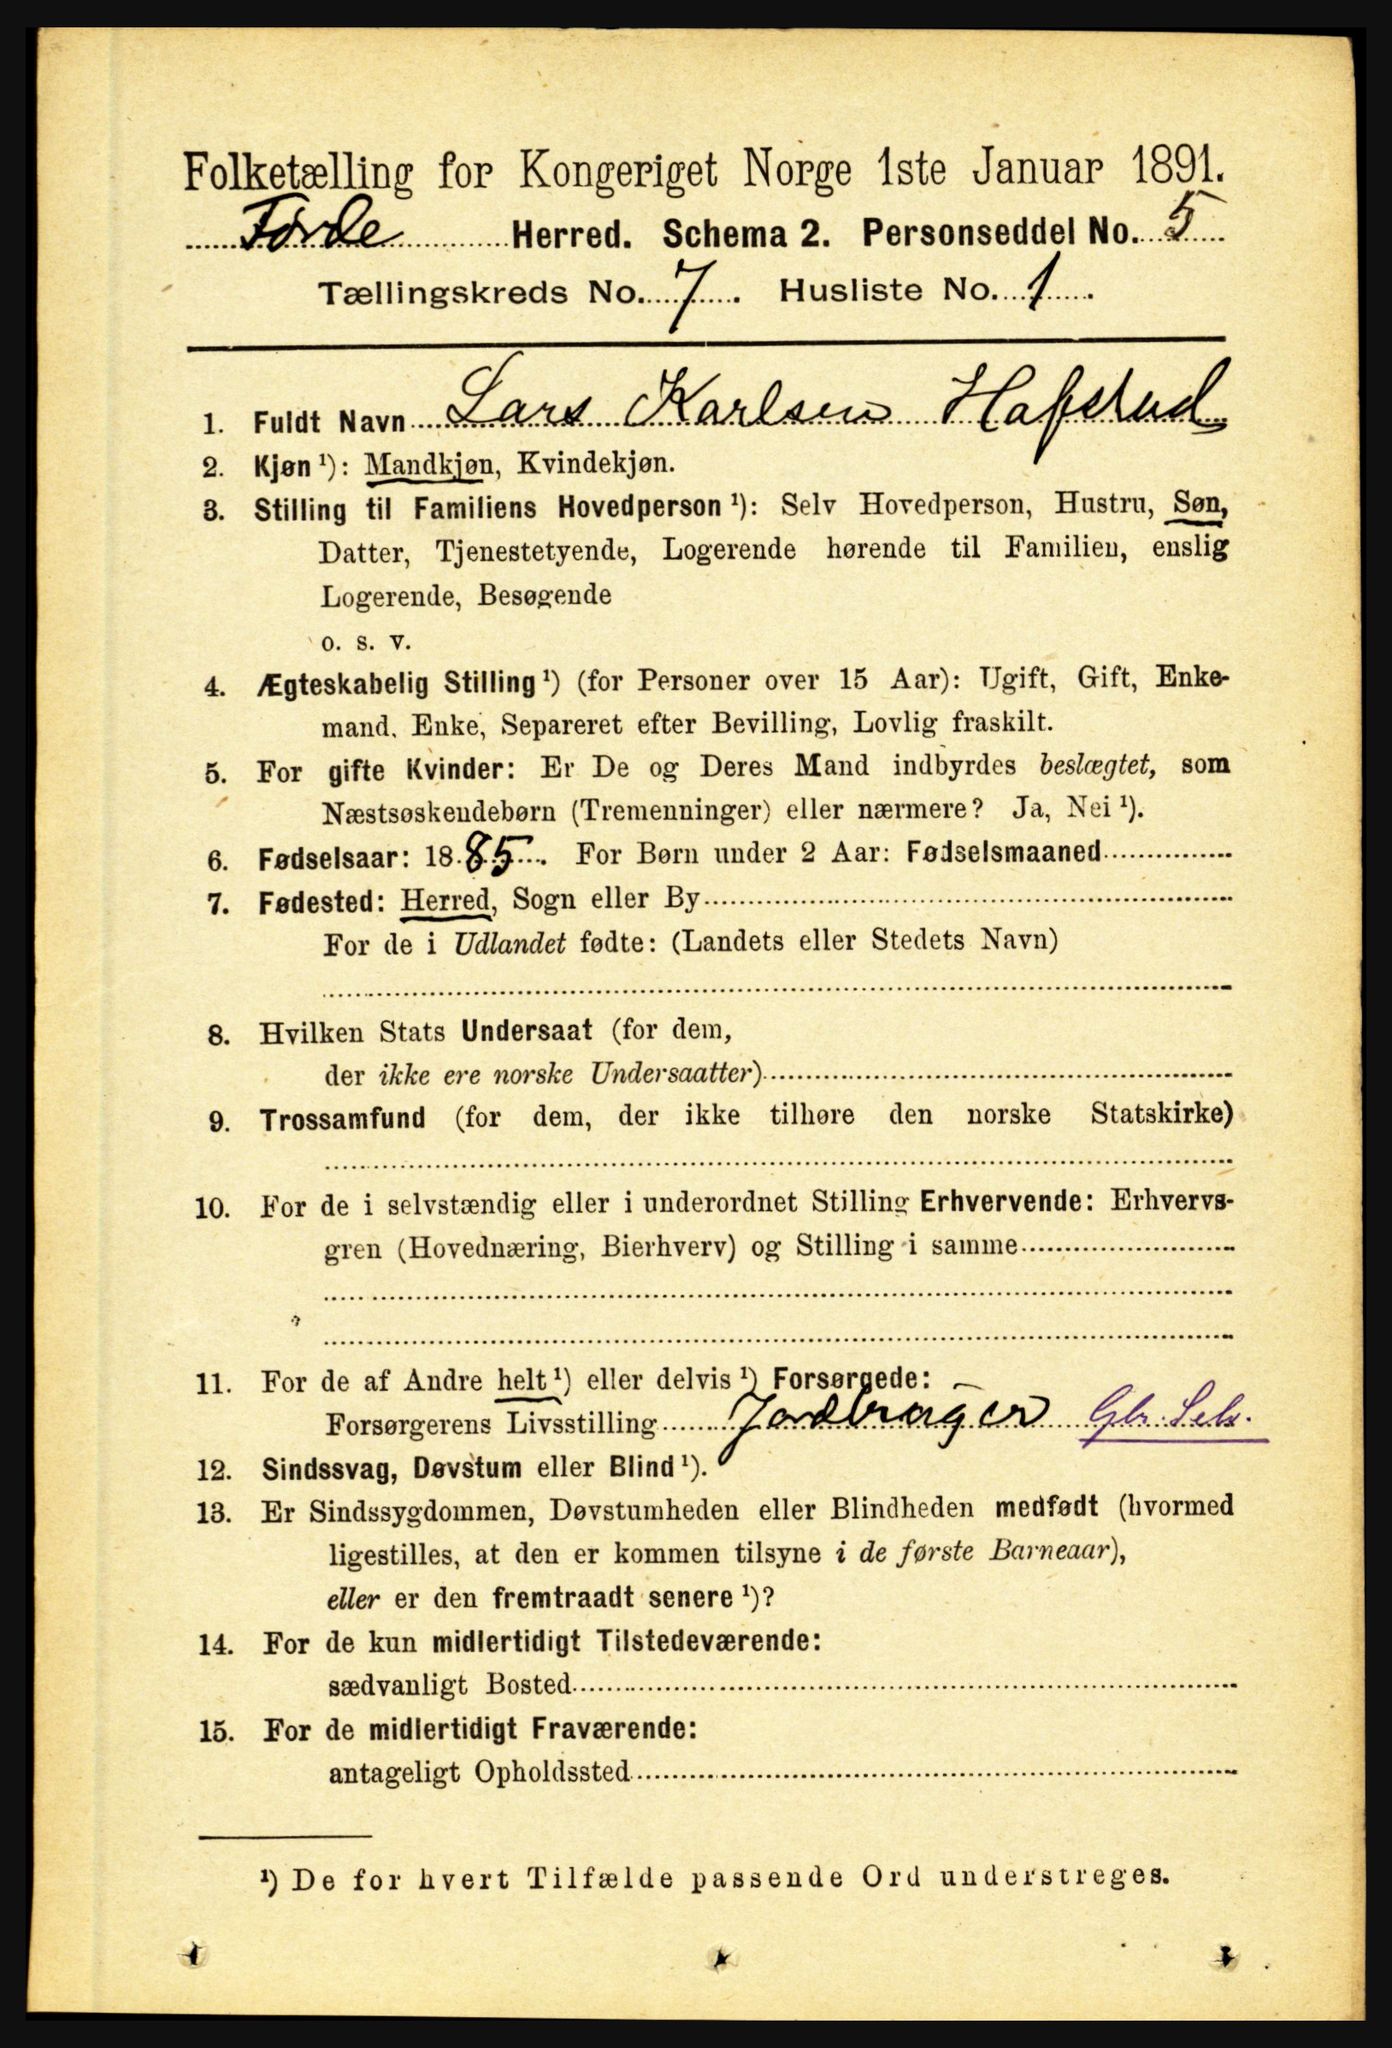 Folketælling for Kongeriget Norge 1ste Januar 1891.
Førde Herred. Schema 2. Personseddel No. 5
Tællingskreds No. 7. Husliste No. 1.
1. Fuldt Navn Lars Karlsen Hafstad
2. Kjøn ¹): Mandkjøn, Kvindekjøn.
3. Stilling til Familiens Hovedperson ¹): Selv Hovedperson, Hustru, Søn,
Datter, Tjenestetyende, Logerende hørende til Familien, enslig
Logerende, Besøgende
o. s. v.
4. Ægteskabelig Stilling ¹) (for Personer over 15 Aar): Ugift, Gift, Enke-
mand, Enke, Separeret efter Bevilling, Lovlig fraskilt.
5. For gifte Kvinder: Er De og Deres Mand indbyrdes beslægtet, som
Næstsøskendebørn (Tremenninger) eller nærmere? Ja, Nei ¹).
6. Fødselsaar: 1885. For Børn under 2 Aar: Fødselsmaaned
7. Fødested: Herred, Sogn eller By
For de i Udlandet fødte: (Landets eller Stedets Navn)
8. Hvilken Stats Undersaat (for dem,
der ikke ere norske Undersaatter)
9. Trossamfund (for dem, der ikke tilhøre den norske Statskirke)
10. For de i selvstændig eller i underordnet Stilling Erhvervende: Erhvervs-
gren (Hovednæring, Bierhverv) og Stilling i samme
11. For de af Andre helt ¹) eller delvis ¹) Forsørgede:
Forsørgerens Livsstilling Jordbruger Gbr. Selv.
12. Sindssvag, Døvstum eller Blind ¹).
13. Er Sindssygdommen, Døvstumheden eller Blindheden medfødt (hvormed
ligestilles, at den er kommen tilsyne i de første Barneaar),
eller er den fremtraadt senere ¹)?
14. For de kun midlertidigt Tilstedeværende:
sædvanligt Bosted
15. For de midlertidigt Fraværende:
antageligt Opholdssted
¹) De for hvert Tilfælde passende Ord understreges.